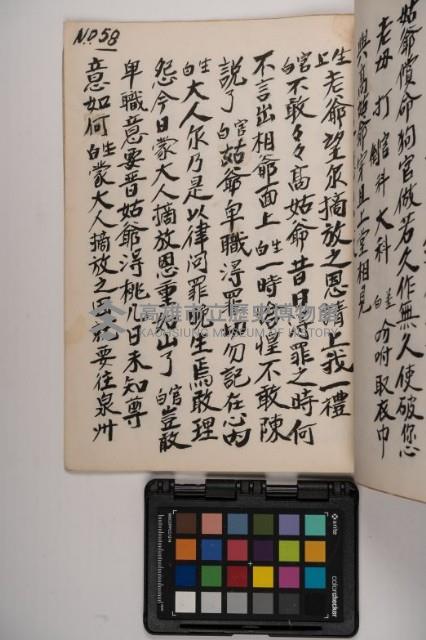 姑爺償命狗官做若久作無久使破您
老毋打 舘科大科 白差 吩咐取衣巾
與高姑爺穿且上堂相見
生上 老爺望尔摘放之恩請上我一禮
白官 不敢々々高姑爺昔日問罪之時何
不言出相爺面上 白生 一時愴惶不敢陳
說了 白官 姑爺卑職淂罪 勿記在心內
白生 大人尔乃是以律问罪 生焉敢
怨今日蒙大人摘放恩重 出了 白官 豈敢理
卑職意要晋姑爺淂桃 日未知尊
意如何 白生 蒙大人摘放之恩 要往泉州
NO 58
高雄市立歷史博物館
KAOHSIUNG MUSEUM OF HISTORY
x-rite
colorchecker